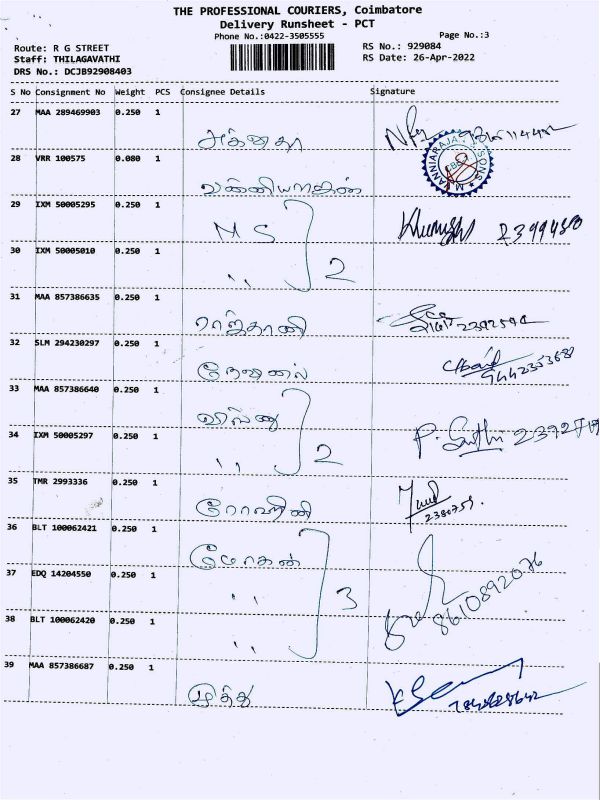 THE PROFESSIONAL COURIERS, Coimbatore
Delivery Runsheet - PCT
Phone No.:0422-3505555
Page No.:3
Route: R G STREET
RS No.: 929084
Staff: THILAGAVATHI
RS Date: 26-Apr-2022
DRS No.: DCJB92908403
S No Consignment No Weight PCS Consignee Details Signature
27 MAA 289469903 0.250 1
28 VRR 100575 0.080 1
வன்னியராஜன்
29 IXM 50005295 0.250 1
MS
2
30 IXM 50005010 0.250 1
,,
31 MAA 857386635 0.250 1
ராஜ்தானி
32 SLM 294230297 0.250 1
33 MAA 857386640 0.250 1
விஷ்ணு
2
34 IXM 50005297 0.250 1
,,
35 TMR 2993336 0.250 1
ரோஹினி
2380759
36 BLT 100062421 0.250 1
மோகன்
37 EDQ 14204550 0.250 1
,, 3
8610892076
38 BLT 100062420 0.250 1
,,
39 MAA 857386687 0.250 1
முத்து